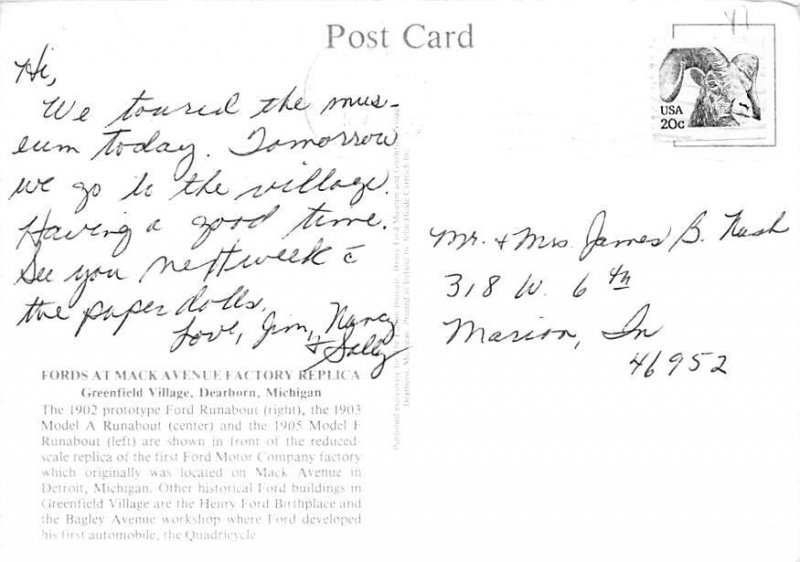 Post Card
Hi,
We toured the mus-
eum today. Tomorrow
we go to the village.
Having a good time.
See you next week c̄
the paper dolls.
Love, Jim, Nancy
+ Sally
USA
20c
Mr. + Mrs. James B. Nash
318 W. 6th
Marion, In
46952
FORDS AT MACK AVENUE FACTORY REPLICA
Greenfield Village, Dearborn, Michigan
The 1902 prototype Ford Runabout (right), the 1903
Model A Runabout (center) and the 1905 Model F
Runabout (left) are shown in front of the reduced-
scale replica of the first Ford Motor Company factory
which originally was located on Mack Avenue in
Detroit, Michigan. Other historical Ford buildings in
Greenfield Village are the Henry Ford Birthplace and
the Bagley Avenue workshop where Ford developed
his first automobile, the Quadricycle.